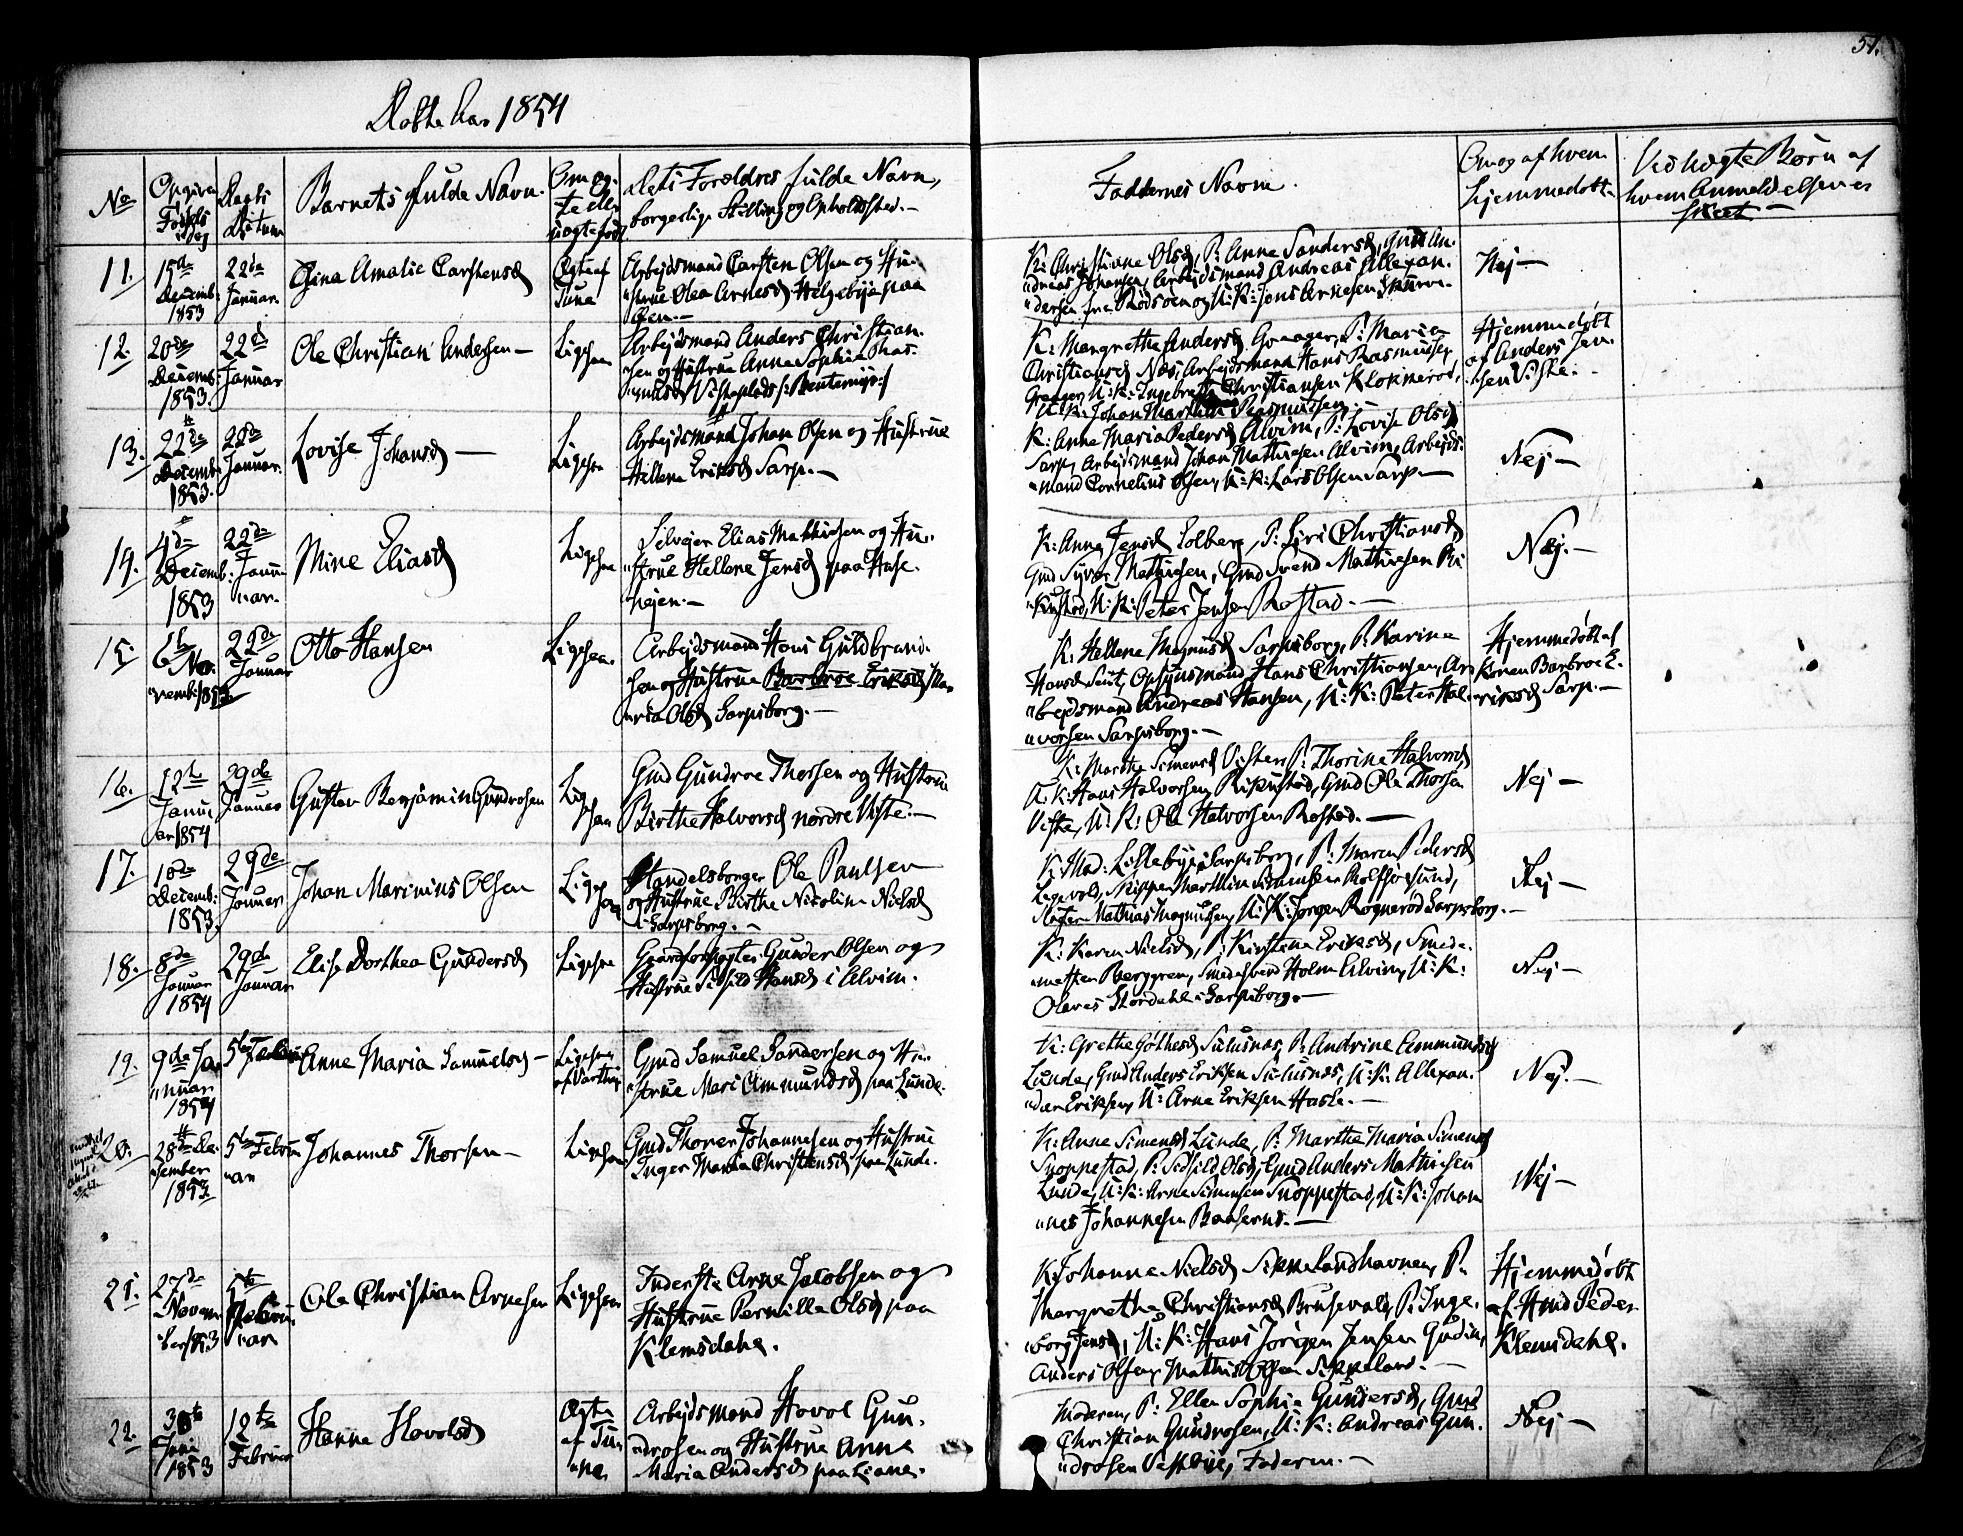 51.
Døbte Aar 1854
No
Opgiven Fødselsdag
Daabs Datum
Barnets fulde Navn.
Om ægte eller uægte født
Dets Forældres fulde Navn,
borgerlige Stilling og Opholdsted.-
Faddernes Navne.
Om og af hvem
hjemmedøbt
Ved uægte Børn af
hvem Anmeldelsen er
skeet -
11.
15de
Decemb:
1853
22de
Januar.
Gina Amalie Carstensd
Ægte af
Tune
Arbejdsmand Carsten Olsen og Hu-
"strue Olea Arnesd Helgebye paa
Øen.-
K: Christiane Olsd, P: Anne Sandersd, Gmd An-
"dreas Johansen, Arbejdsmand Andreas Allexan-
"dersen fra Rødsøen og U: K: Jens Arnesen
Nej-
12.
20de
Decemb:
1853.
22de
Januar
Ole Christian Andersen -
Ligesaa
Arbejdsmand Anders Christian-
sen og Hustrue Anna Sophia Ras-
"musd Visteplads
K: Margrethe Andersd P: Maria
Christiansd Næs, Arbejdsmand Hans Rasmussen
Greager, U: K: Ingebret Christiansen Klokkerød,
U: K: Johan Martin Rasmussen -
Hjemmedøbt
af Anders Jen-
"sen Viste.-
13.
22de
Decemb:
1853.
22de
Januar.
Lovise Johansd -
Ligesaa
Arbejdsmand Johan Olsen og Hustrue
Hellene Eriksd Sarp.-
K: Anne Maria Pedersd Alvim, P: Lovise Olsd
Sarp, Arbejdsmand Johan Mathiesen Alvim, Arbejds-
"mand Cornelius Olsen, U: K: Lars Olsen Sarp.-
Nej-
14.
4de
Decemb:
1853
22de
Janu-
"ar.
Mine Eliasd
Ligesaa
Selvejer Elias Mathisen og Hu-
"strue Hellene Jensd paa Hase-
"højen.-
K: Anne Jensd Solberg, P: Siri Christiansd
Gmd Syver Mathisen, Gmd Svend Mathisen Ri-
"kustad, U: K: Peter Jensen Rostad.-
Nej.-
15.
6te No-
"vemb: 1853
22de
Januar
Otto Hansen
Ligesaa.
Arbejdsmand Hans Guldbrand-
sen og Hustrue Barbroe Eriksd Ma-
"ria Olsd Sarpsborg.-
K: Hellene Magnusd Sarpsborg, P: Karine
Hansd Opsynsmand Hans Christiansen, Ar-
"bejdsmand Andreas Hansen, U: K: Peter Hal-
"vorsen Sarpsborg.-
Hjemmedøbt af
Konen Barbroe E-
"riksd Sarp.-
16.
12te
Janu-
ar 1854
29de
Januar
Gustav Benjamin Gundrosen
Lige
saa
Gmd Gundroe Thorsen og Hustrue
Birthe Halvorsd nordre Viste.-
K: Marthe Simensd Visten, P: Thorine Halvorsd
U: K: Hans Halvorsen Rikustad, Gmd Ole Thorsen
Viste, U: K: Ole Halvorsen Rostad.-
Nej-
17.
10de
Decemb:
1853.
29de
Januar
Johan Marinius Olsen
Ligesaa
Handelsborger Ole Paulsen
og Hustrue Birthe Nicoline Nielsd
i Sarpsborg.-
K: Mad: Lillebye Sarpsborg, P: Maren Pedersd
Skipper Marthin Simensen Rolfsøesund,
Mathias Magnussen, U: K: Jørgen Rognerød Sarpsborg.-
Nej-
18.
8de
Januar
1854
29de
Januar
Elise Dorthea Gundersd
Ligesaa
Gaardforpagter Gunder Olsen og
Hustrue Sidsild Hansd i Alvim.
K: Karen Nielsd, P: Kirstine Eriksd, Smede-
"mester Berggren, Smedesvend Holm Alvim, U: K:
Olaves Stordahl i Sarpsborg.-
Nej-
19.
9de Ja-
"nuar
1854
5te Februar
Anne Maria Samuelsd -
Ligesaa
af Varteig
Gmd Samuel Sandersen og Hu-
"strue Mari Ammundsd paa Lunde.
K: Grethe Gøthesd Sulusnæs, P: Andrine Ammundsd
Lunde, Gmd Anders Eriksen Sulusnæs, U: K: Allexan-
"der Eriksen, U: Arne Eriksen Hasle.-
Nej.-
20.
28de De-
"cember
1853
5te Febru-
"ar
Johannes Thorsen -
Ligesaa
Gmd Thorer Johannesen og Hustrue
Inger Maria Christensd paa Lunde.
K: Anne Simensd Lunde, P: Marthe Maria Simensd
Snoppestad, P: Sidsild Olsd, Gmd Anders Mathisen
Lunde, U: K: Arne Simensen Snoppestad, U: K: Johan-
"nes Johannesen Baaserud.-
Nej-
21.
27de
Novem-
"ber 1853
5te
Febru-
"ar
Ole Christian Arnesen
Ligesaa
Inderste Arne Jacobsen og
Hustrue Pernille Olsd paa
Klemsdahl.
K: Johanne Nielsd Sikkelandhavnen, P:
Margrethe Christiansd Brusevold, P: Inge-
"borg Jensd, U: K: Hans Jørgen Jensen Gudim,
Anders Olsen, Mathis Olsen Sikkeland.-
Hjemmedøbt
af Hmd Peder
Klemsdahl.
22.
30te
Juni
1853
12te
Februar
Hanne Hovolsd
Ægte
af Tu-
"ne
Arbejdsmand Hovol Gun-
"drosen og Hustrue Anne
Maria Andersd paa Liane.
Moderen, P: Ellen Sophie Gundersd, Gmd
Christian Gundrosen, U: K: Andreas Gun-
"drosen Vestbye, Faderen.-
Nej-